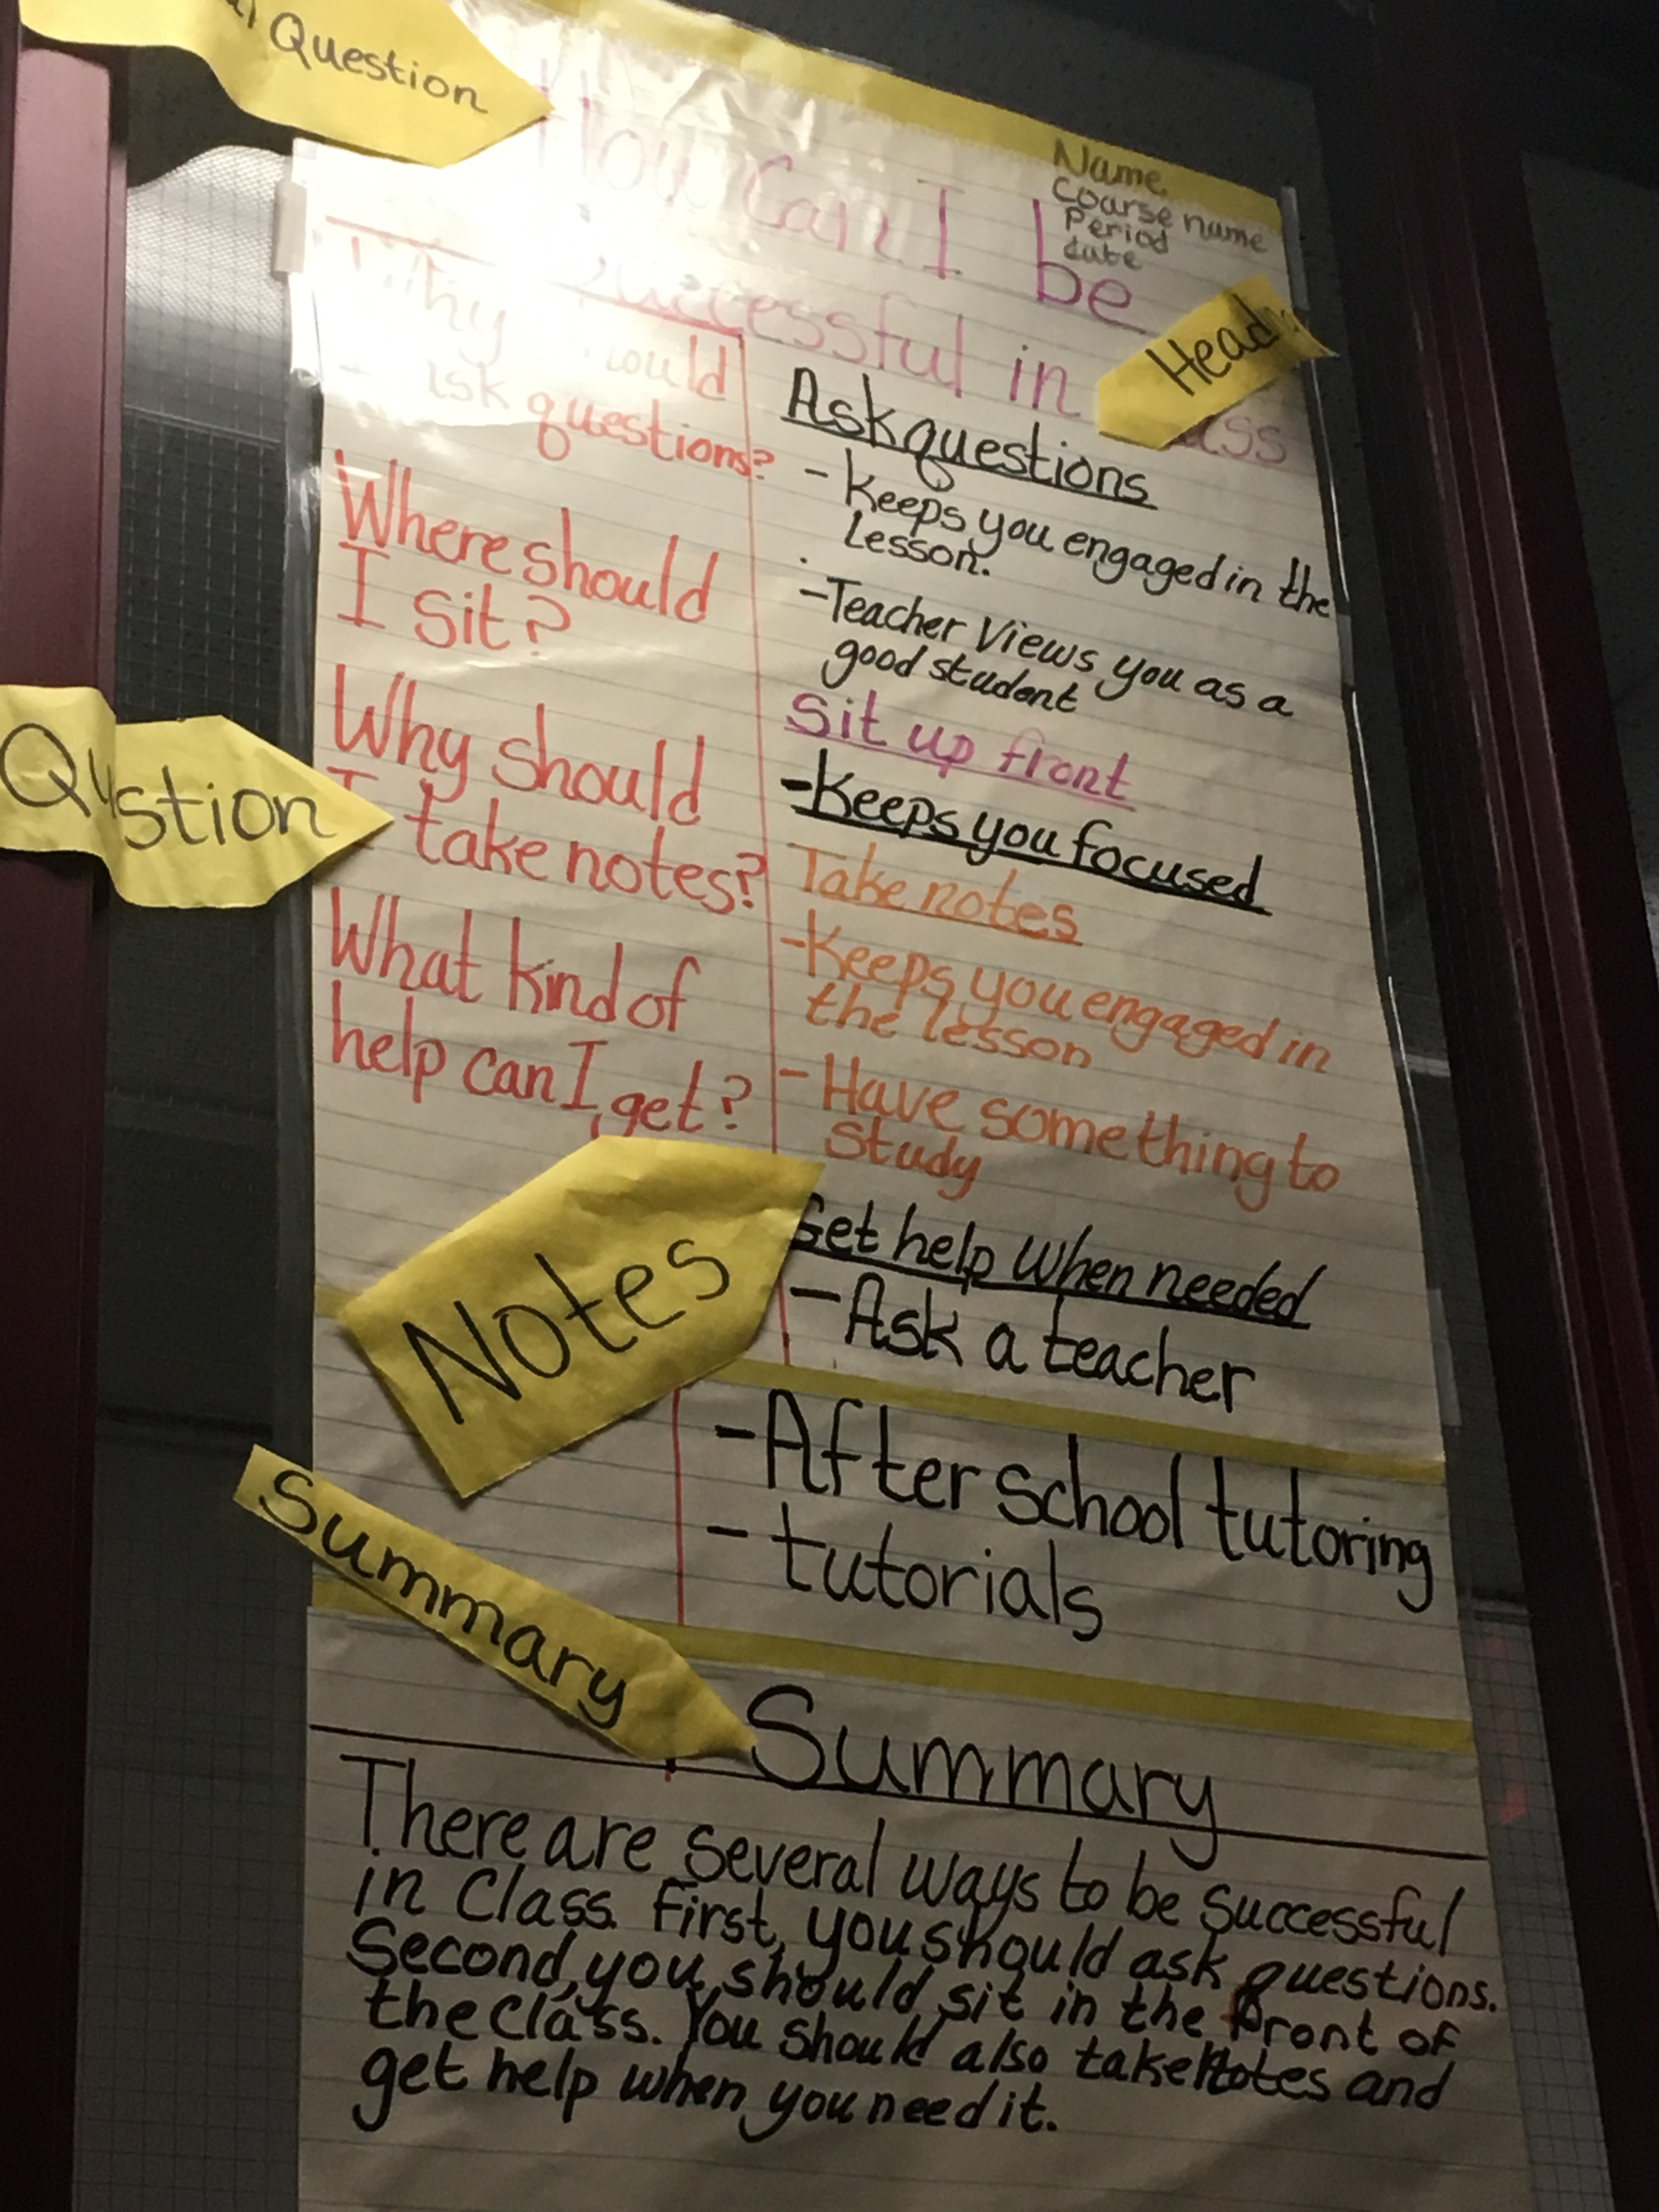 Question
Name
Coarse name
Period
date
How Can I be
Successful in
Why should
questions?
Where should
I sit?
Why should
I take notes?
What kind of
help can I get?
Ask questions
- Keeps you engaged in the
Lesson.
- Teacher Views you as a
good student
Sit up front
- Keeps you focused
Take notes
- Keeps you engaged in
the lesson
- Have something to
Study
Get help when needed
- Ask a teacher
- After school tutoring
- tutorials
Question
Notes
Summary
Summary
There are several ways to be successful
in Class. First, you should ask questions.
Second, you should sit in the front of
the class. You should also take Notes and
get help when you need it.